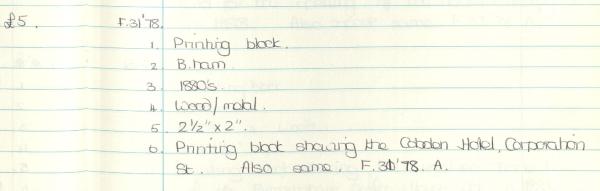 £5. F.31'78.
1. Printing block.
2. B.ham
3. 1880's
4. Wood/metal.
5. 2½" x 2".
6. Printing block showing the Cobden Hotel, Corporation
St. Also same. F.31'78. A.